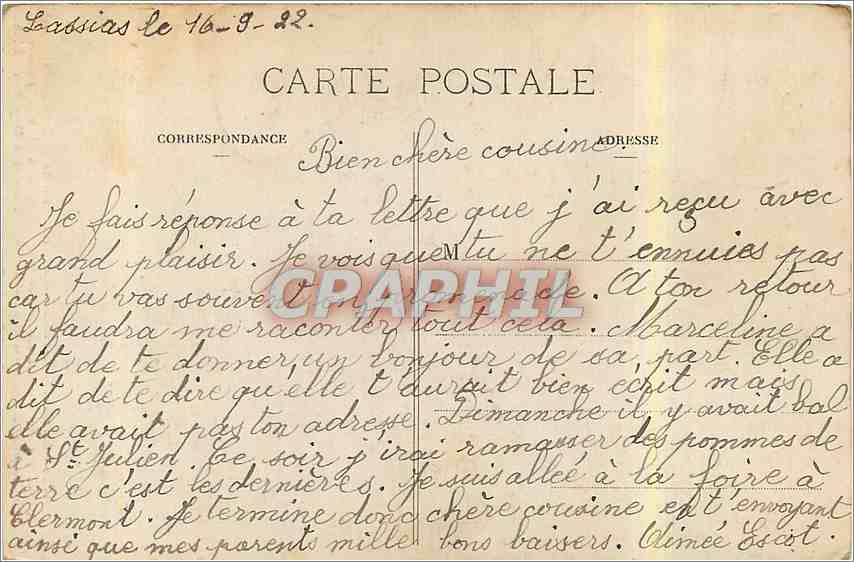 Lassias le 16-9-22.
CARTE POSTALE
CORRESPONDANCE
ADRESSE
Bien chère cousine.
Je fais réponse à ta lettre que j'ai reçu avec
grand plaisir. Je vois que tu ne t'ennuies pas
M
car tu vas souvent en promenade. A ton retour
CPARPHIL
il faudra me raconter tout cela. Marceline a
dit de te donner un bonjour de sa part. Elle a
dit de te dire qu'elle t'aurait bien écrit mais
elle avait pas ton adresse. Dimanche il y avait bal
à St Julien. Ce soir j'irai ramasser des pommes de
terre c'est les dernières. Je suis allée à la foire à
Clermont. Je termine donc chère cousine en t'envoyant
ainsi que mes parents mille bons baisers. Aimée Escot.